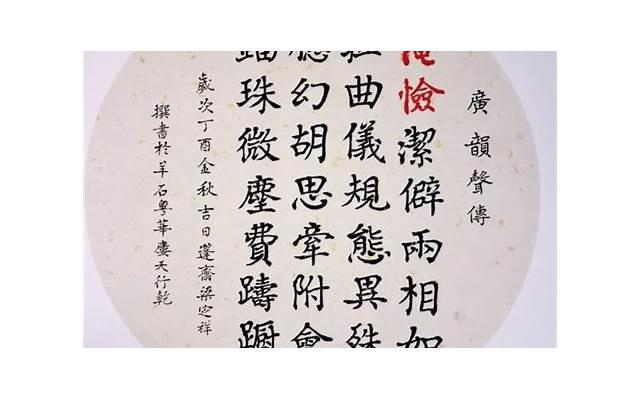 廣韻聲傳
憸潔僻兩相如
曲儀規態異殊
幻胡思牽附會
珠微塵費躊躕
歲次丁酉金秋吉日蓬齋梁定祥
撰書於羊石粵華廔天行乾